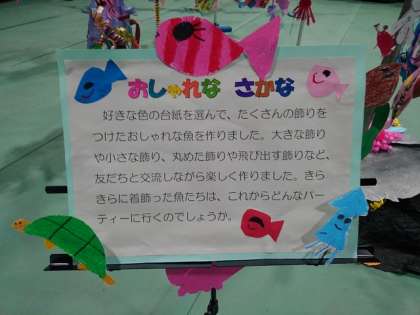 おしゃれな さかな
好きな色の台紙を選んで、たくさんの飾りを
つけたおしゃれな魚を作りました。大きな飾り
や小さな飾り、丸めた飾りや飛び出す飾りなど、
友だちと交流しながら楽しく作りました。きら
きらに着飾った魚たちは、これからどんなパー
ティーに行くのでしょうか。